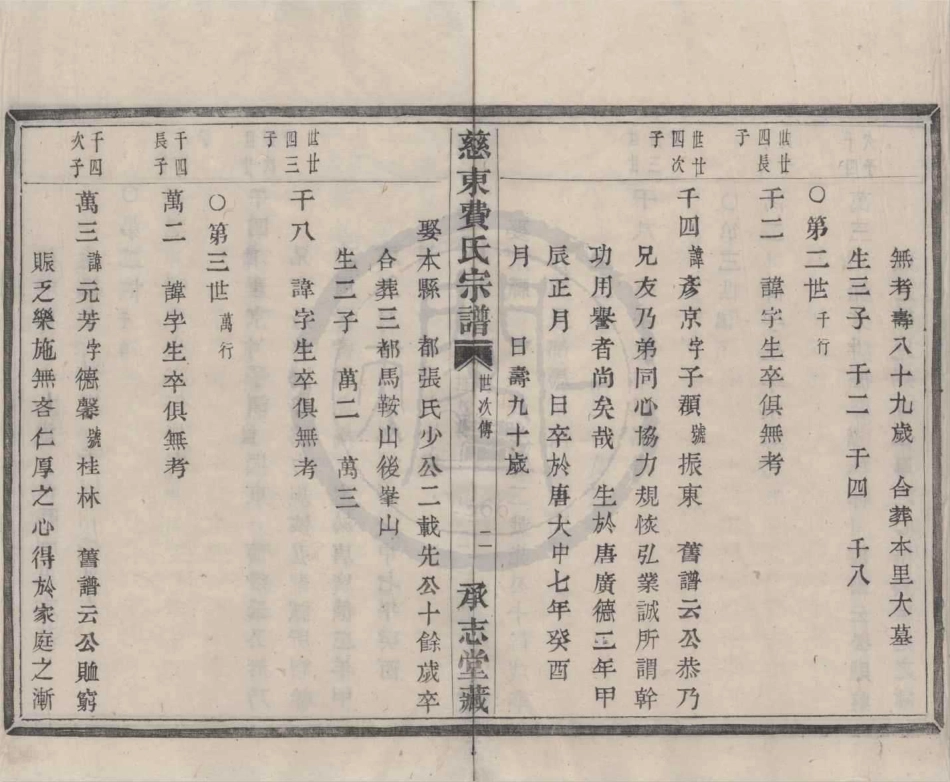 無考壽八十九歲 合葬本里大墓
生三子 千二 千四 千八
〇第二世 千行
世廿四長子 千二 諱字生卒俱無考
世廿四次子 千四 諱彥京字子頴號振東 舊譜云公恭乃
兄友乃弟同心協力規恢弘業誠所謂幹
功用譽者尚矣哉 生於唐廣德二年甲
辰正月 日卒於唐大中七年癸酉
月 日壽九十歲
慈東費氏宗譜 世次傳 二 承志堂藏
娶本縣 都張氏少公二載先公十餘歲卒
合葬三都馬鞍山後峯山
生二子 萬二 萬三
世廿四三子 千八 諱字生卒俱無考
〇第三世 萬行
千四長子 萬二 諱字生卒俱無考
千四次子 萬三 諱元芳字德馨號桂林 舊譜云公賉窮
賑乏樂施無吝仁厚之心得於家庭之漸